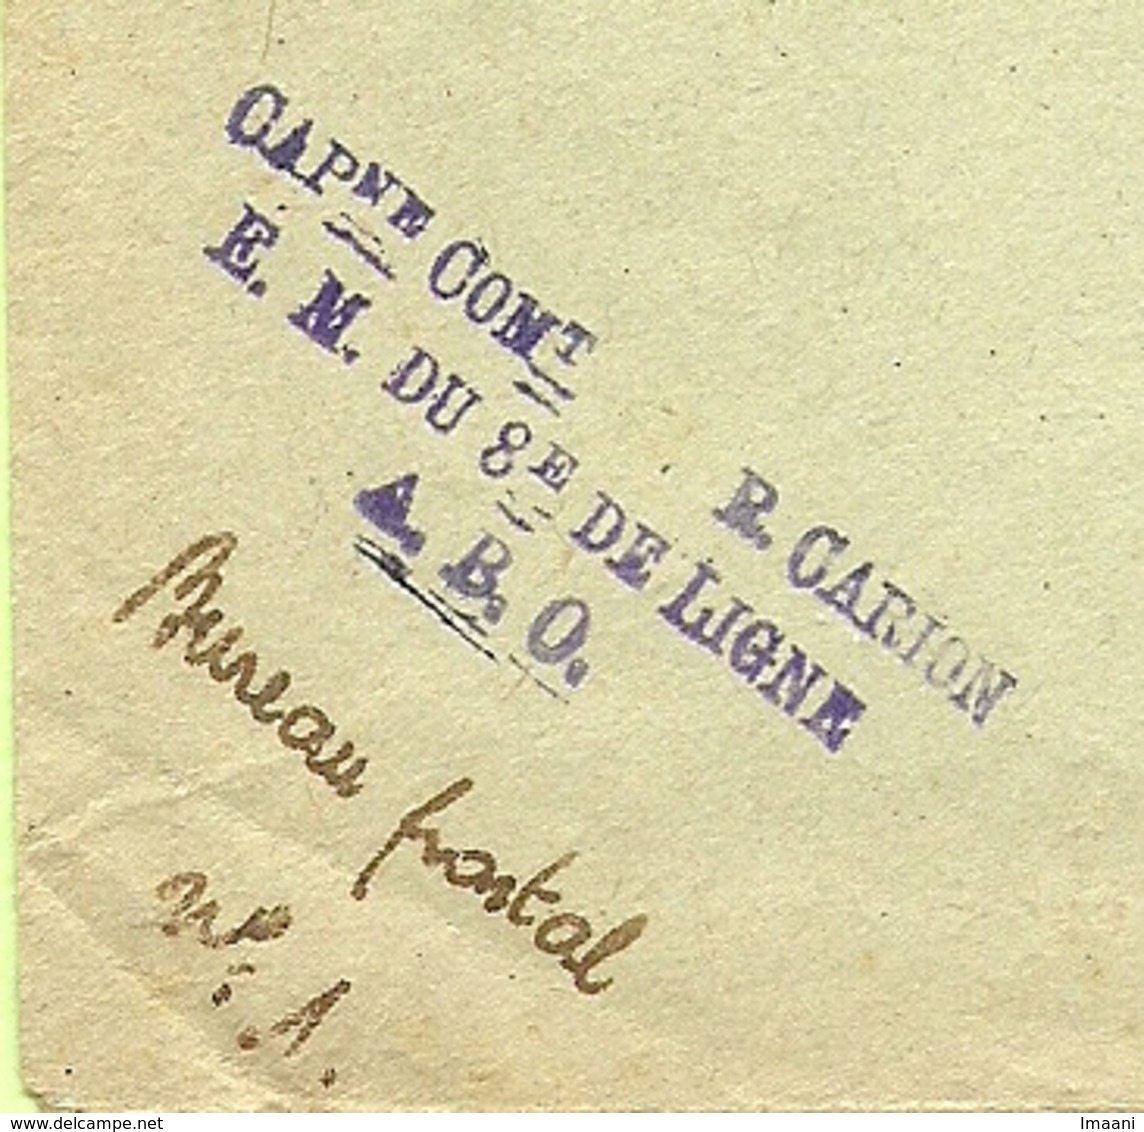 CAPNE COMT R. CARION
E. M. DU 8E DE LIGNE
A. B. O.
Bureau postal
No 1.
www.delcampe.net
Imaani